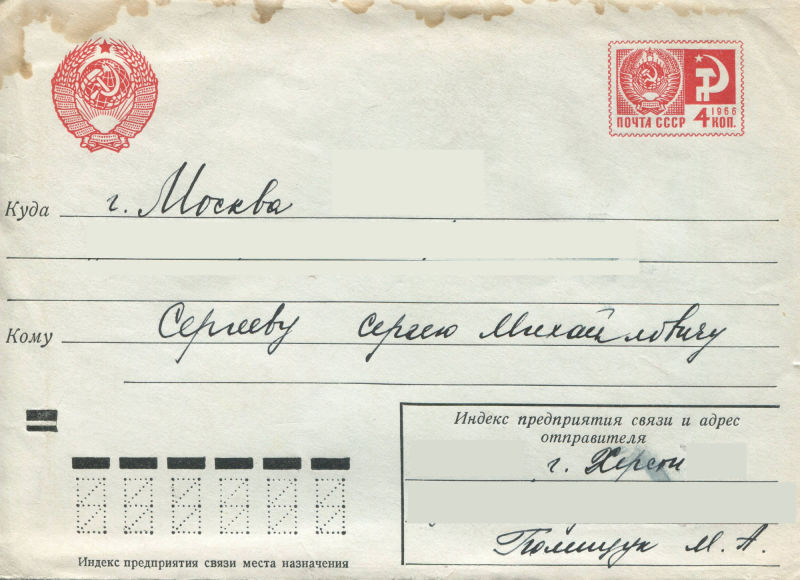 1966
ПОЧТА СССР 4 КОП.
Куда г. Москва
Кому Сергееву Сергею Михайловичу
Индекс предприятия связи и адрес
отправителя
г. Херсон
М. А.
Индекс предприятия связи места назначения